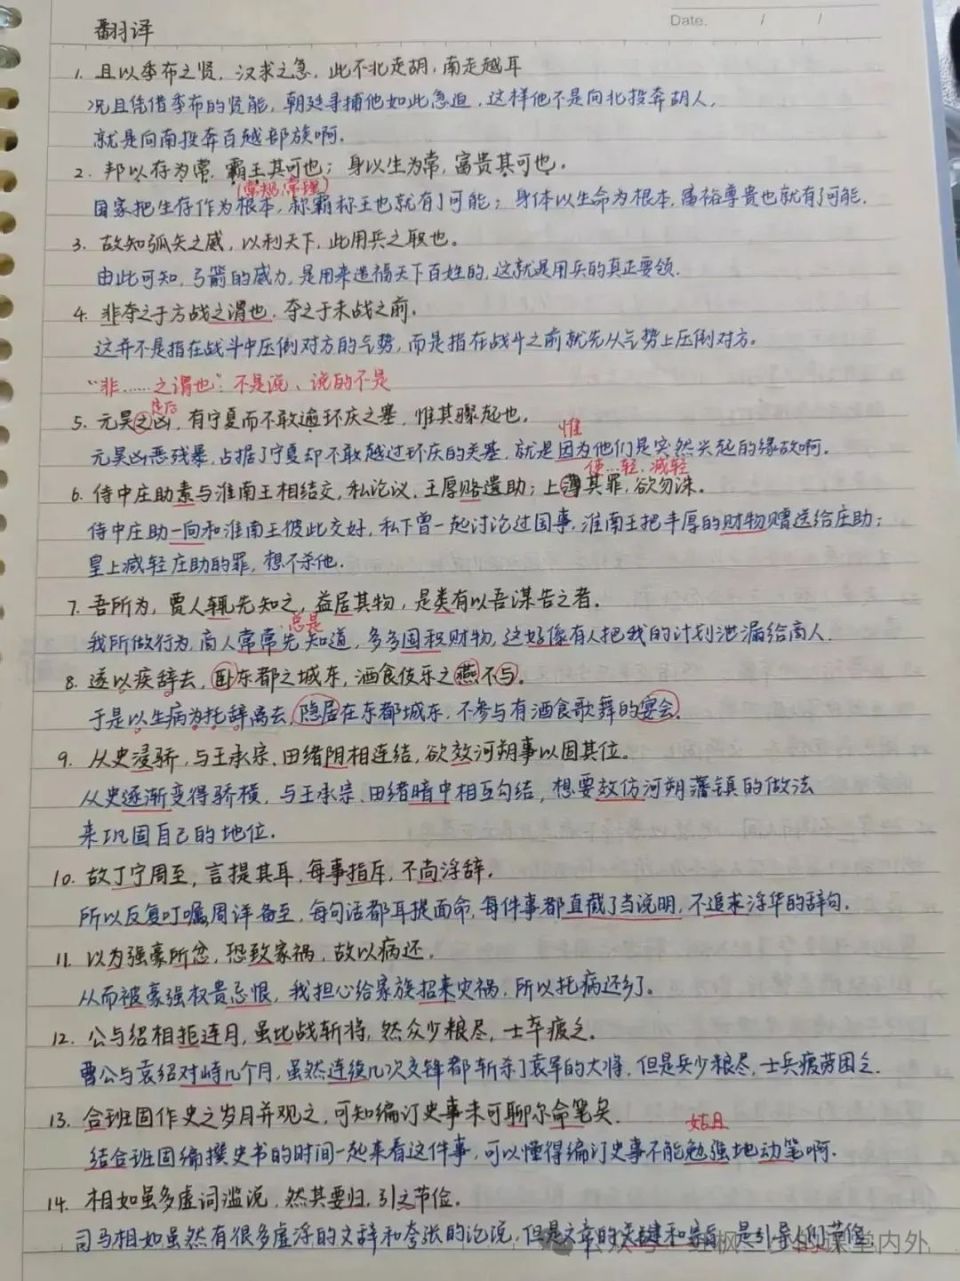 Date. / /
翻译
1. 且以季布之贤，汉求之急，此不北走胡，南走越耳
况且凭借季布的贤能，朝廷寻捕他如此急迫，这样他不是向北投奔胡人，
就是向南投奔百越部族啊。
2. 邦以存为常，霸王其可也；身以生为常，富贵其可也。
(常规，常理)
国家把生存作为根本，称霸称王也就有了可能；身体以生命为根本，富裕尊贵也就有了可能。
3. 故知弧矢之威，以利天下，此用兵之职也。
由此可知，弓箭的威力，是用来造福天下百姓的，这就是用兵的真正要领.
4. 非夺之于方战之谓也，夺之于未战之前。
这并不是指在战斗中压倒对方的气势，而是指在战斗之前就先从气势上压倒对方。
“非……之谓也”：不是说、说的不是
5. 元昊之凶，有宁夏而不敢逾环庆之塞，惟其骤起也。
惟
元昊凶恶残暴，占据了宁夏却不敢越过环庆的关塞，就是因为他们是突然兴起的缘故啊。
使…轻，减轻
6. 侍中庄助素与淮南王相结交，私论议，王厚赂遗助；上薄其罪，欲勿诛。
侍中庄助一向和淮南王彼此交好，私下曾一起讨论过国事，淮南王把丰厚的财物赠送给庄助；
皇上减轻庄助的罪，想不杀他.
7. 吾所为，贾人辄先知之，益居其物，是类有以吾谋告之者。
总是
我所做行为，商人常常先知道，多多囤积财物，这好像有人把我的计划泄漏给商人.
8. 遂以疾辞去，卧东都之城东，酒食伎乐之燕不与。
于是以生病为托辞离去，隐居在东都城东，不参与有酒食歌舞的宴会.
9. 从史浸骄，与王承宗、田绪阴相连结，欲效河朔事以固其位。
从史逐渐变得骄横，与王承宗、田绪暗中相互勾结，想要效仿河朔藩镇的做法
来巩固自己的地位.
10. 故丁宁周至，言提其耳，每事指斥，不尚浮辞。
所以反复叮嘱，周详备至，每句话都耳提面命，每件事都直截了当说明，不追求浮华的辞句.
11. 以为强豪所忿，恐致家祸，故以病还。
从而被豪强权贵忌恨，我担心给家族招来灾祸，所以托病还乡了。
12. 公与绍相拒连月，虽比战斩将，然众少粮尽，士卒疲乏。
曹公与袁绍对峙几个月，虽然连续几次交锋都斩杀了袁军的大将，但是兵少粮尽，士兵疲劳困乏.
13. 合班固作史之岁月并观之，可知编订史事未可聊尔命笔矣.
姑且
结合班固编撰史书的时间一起来看这件事，可以懂得编订史事不能勉强地动笔啊.
14. 相如虽多虚词滥说，然其要归，引之节俭。
司马相如虽然有很多虚浮的文辞和夸张的论说，但是文章的关键和
课堂内外